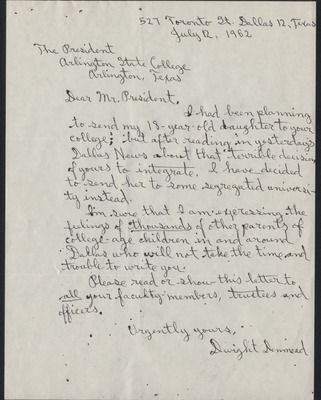 527 Toronto St. Dallas 12, Texas
July 12, 1962
The President
Arlington State College
Arlington, Texas
Dear Mr. President,
I had been planning
to send my 18-year-old daughter to your
college; but after reading in yesterday's
Dallas News about that terrible decision
of yours to integrate, I have decided
to send her to some segregated universi-
ty instead.
I'm sure that I am expressing the
feelings of thousands of other parents of
college-age children in and around
Dallas who will not take the time and
trouble to write you.
Please read or show this letter to
all your faculty members, trustees and
officers.
Urgently yours,
Dwight